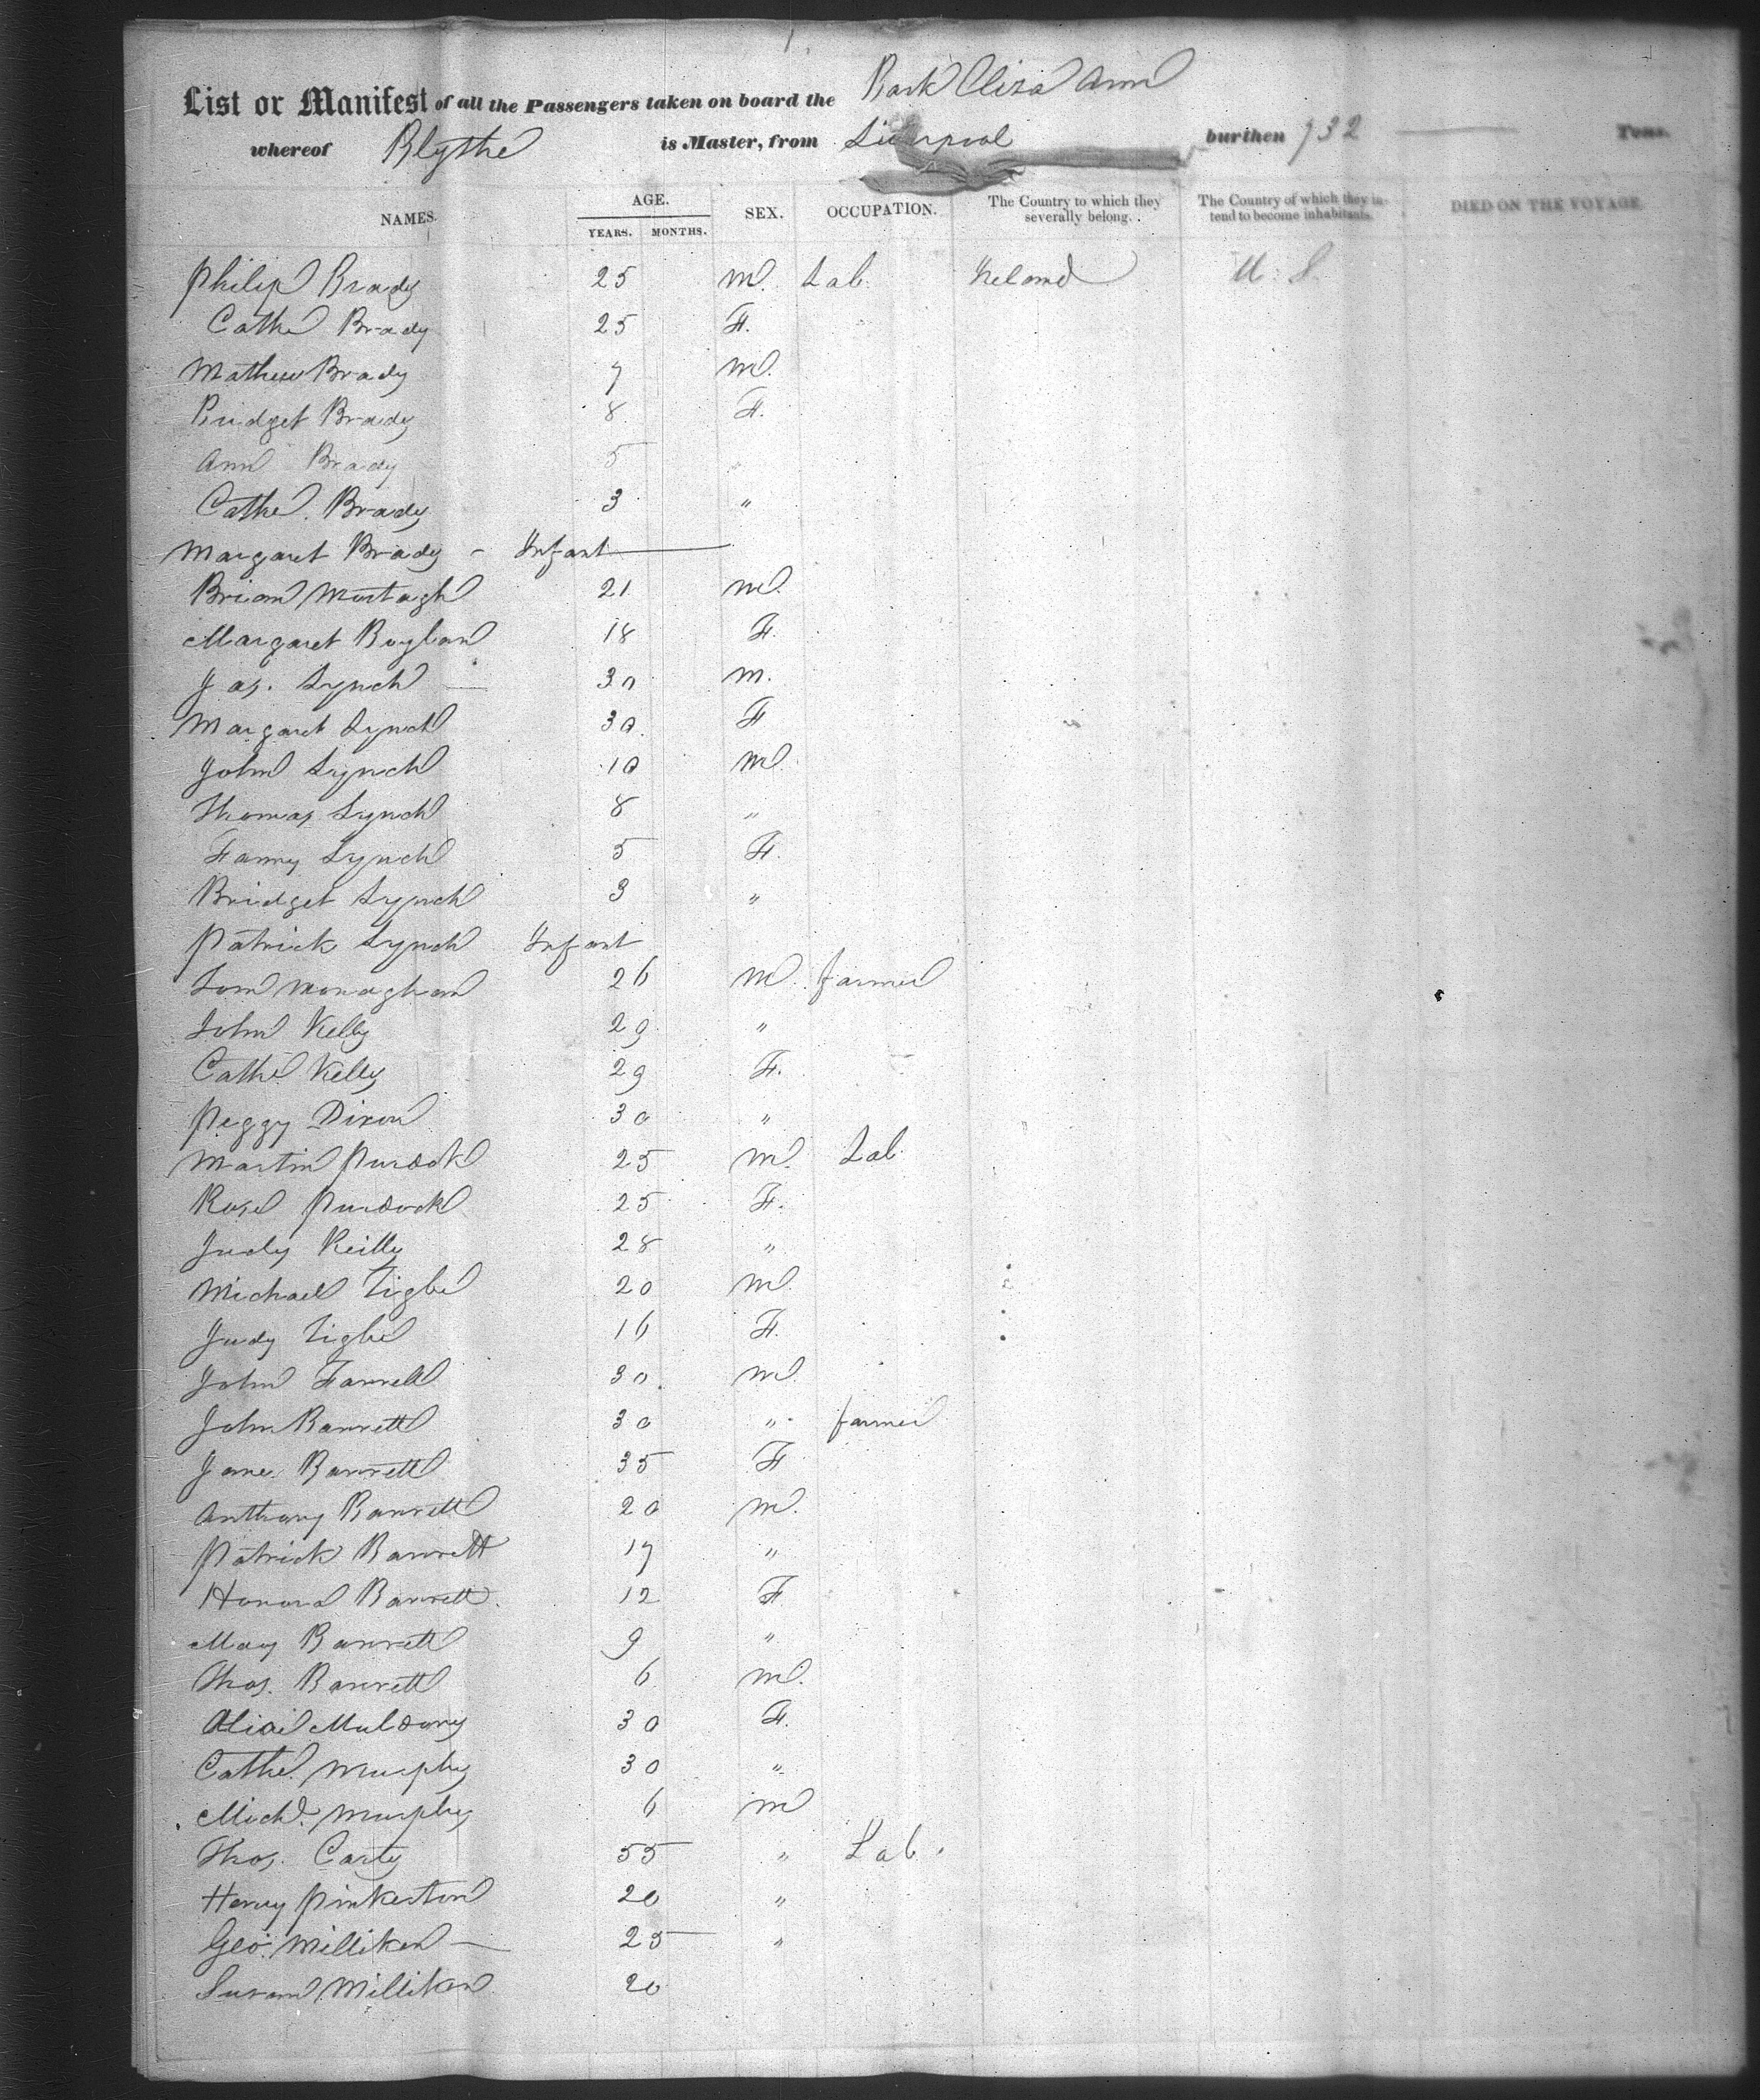 List or Manifest of all the Passengers taken on board the Bark Eliza Ann
whereof Blythe is Master, from Liverpool burthen 732 Tons.
NAMES. AGE. YEARS. MONTHS. SEX. OCCUPATION. The Country to which they severally belong. The Country of which they intend to become inhabitants. DIED ON THE VOYAGE
Philip Brady 25 M. Lab. Ireland U. S.
Cathe Brady 25 F.
Mathew Brady 7 M.
Bridget Brady 8 F.
Ann Brady 5 "
Cathe. Brady 3 "
Margaret Brady - Infant
Brian Murtagh 21 M.
Margaret Boylan 18 F.
Jas. Lynch 30 M.
Margaret Lynch 30 F
John Lynch 10 M.
Thomas Lynch 8 "
Fanny Lynch 5 F.
Bridget Lynch 3 "
Patrick Lynch Infant
Tom Monaghan 26 M. farmer
John Kelly 29 "
Cathe Kelly 29 F.
Peggy Dixon 30 "
Martin Purdock 25 M. Lab.
Rose Purdock 25 F.
Judy Reilly 28 "
Michael Tighe 20 M.
Judy Tighe 16 F.
John Farrell 30 M.
John Barrett 30 " farmer
Jane Barrett 35 F
Anthony Barrett 20 M.
Patrick Barrett 17 "
Honora Barrett. 12 F
Mary Barrett 9 "
Thos. Barrett 6 M.
Muldony 30 F.
Cathe. Murphy 30 "
Michl. Murphy 6 M
Thos. Carty 55 " Lab.
Henry Pinkerton 20 "
Geo. Milliken 25 "
Susan Milliken 20